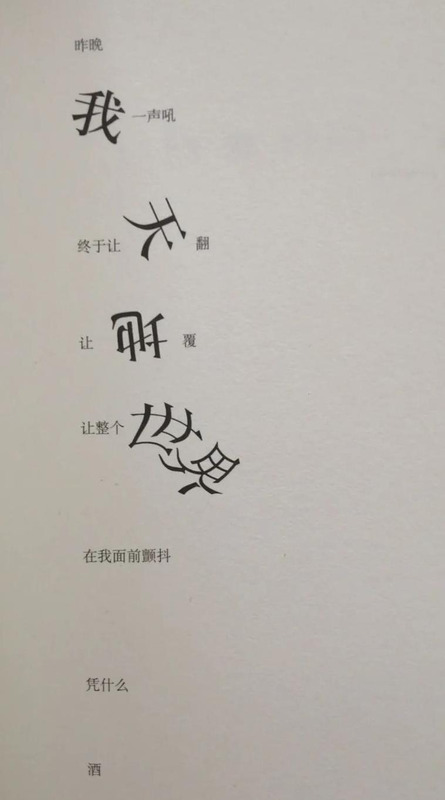 昨晚
我一声吼
终于让天翻
让地覆
让整个世界
在我面前颤抖
凭什么
酒